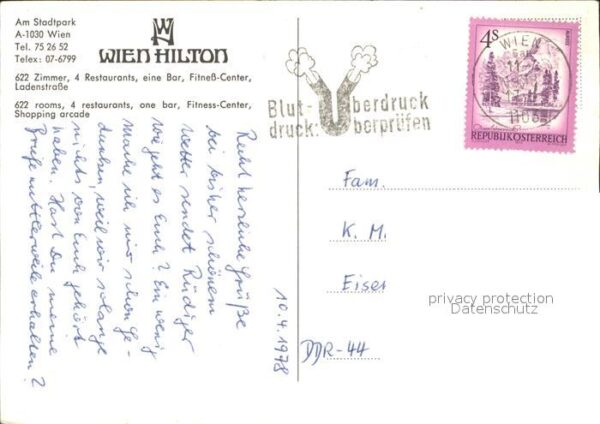 Am Stadtpark
A-1030 Wien
Tel. 75 26 52
Telex: 07-6799
WIEN HILTON
622 Zimmer, 4 Restaurants, eine Bar, Fitneß-Center,
Ladenstraße
622 rooms, 4 restaurants, one bar, Fitness-Center,
Shopping arcade
Recht herzliche Grüße
bei bisher schönem
Wetter sendet Rüdiger
Wie geht es Euch? Ein wenig
mache ich mir schon Ge-
danken, weil wir solange
nichts von Euch gehört
haben. Hast Du meine
Grüße mittlerweile erhalten?
10.4.1978
Blut- Überdruck
druck: überprüfen
WIEN
4S
REPUBLIK ÖSTERREICH
Fam.
K. M.
Eiser
DDR-44
privacy protection
Datenschutz